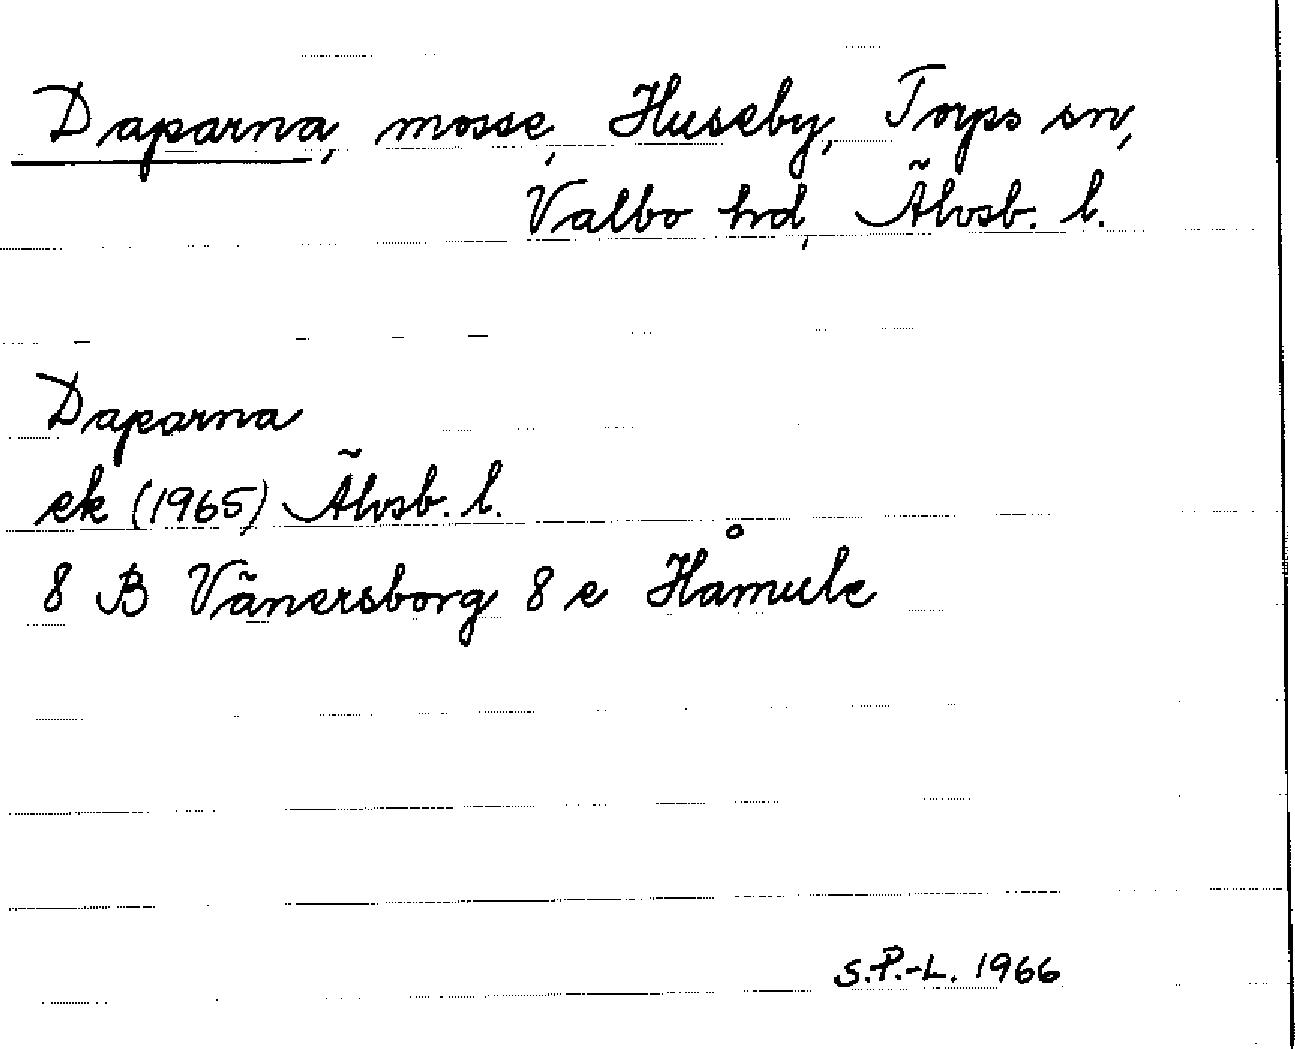 Daparna, mosse, Huseby, Torps sn,
Valbo hrd, Älvsb. l.
Daparna
ek (1965) Älvsb. l.
8 B Vänersborg 8 e Håmule
S.P.-L. 1966